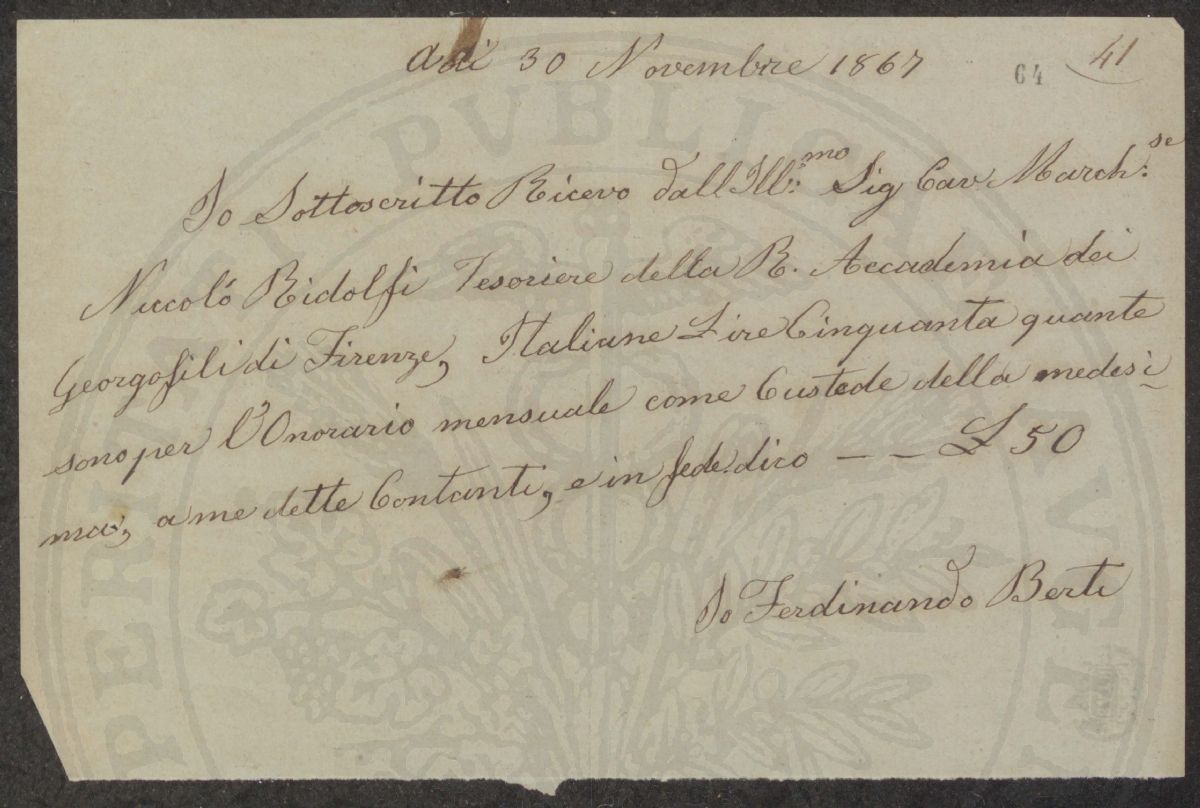 adì 30 Novembre 1867
64
41
Io Sottoscritto Ricevo dall Ill:mo Sig Cav. March:se
Niccoló Ridolfi Tesoriere della R. Accademia dei
Georgofili di Firenze, Italiane Lire Cinquanta quante
sono per l'Onorario mensuale come Custode della medesi
ma, a me dette Contanti, e in fede dico — — £ 50
Io Ferdinando Berti
PVBLICAE
PROSPERITATI